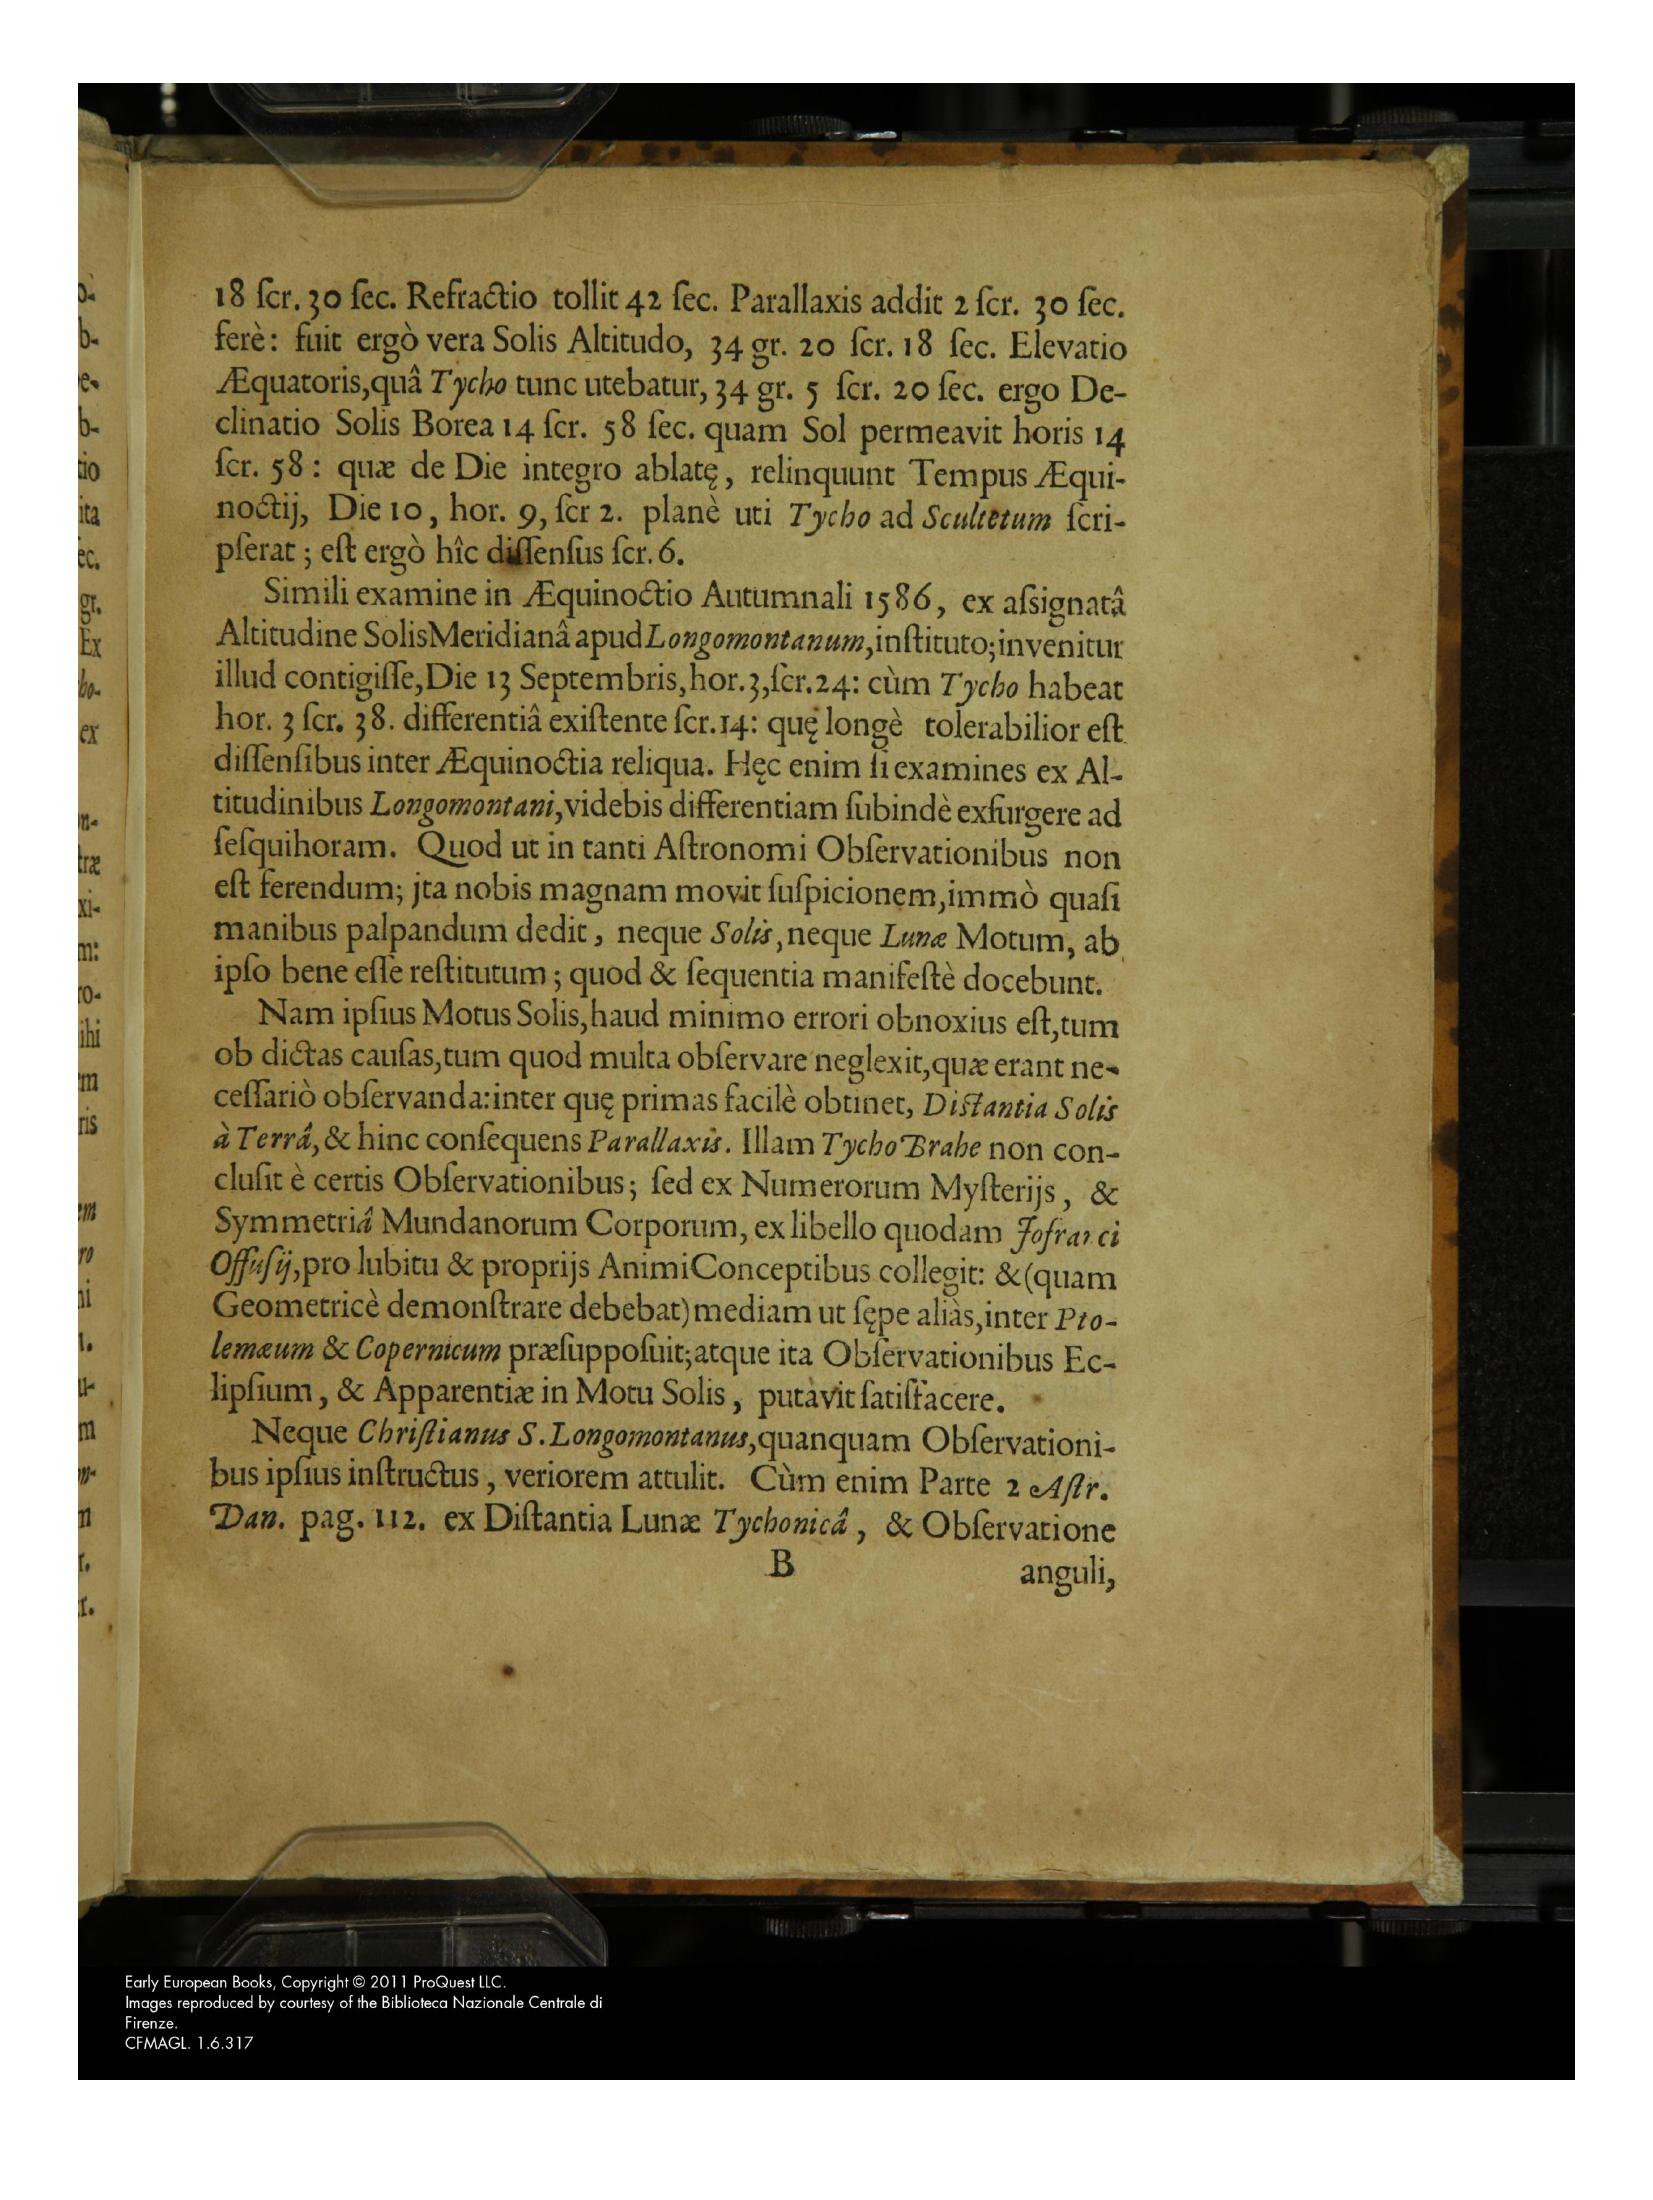 18 ſcr. 30 ſec. Refractio tollit 42 ſec. Parallaxis addit 2 ſcr. 30 ſec.
ferè: fuit ergò vera Solis Altitudo, 34 gr. 20 ſcr. 18 ſec. Elevatio
Æquatoris, quâ Tycho tunc utebatur, 34 gr. 5 ſcr. 20 ſec. ergo De-
clinatio Solis Borea 14 ſcr. 58 ſec. quam Sol permeavit horis 14
ſcr. 58: quæ de Die integro ablatę, relinquunt Tempus Æqui-
noctij, Die 10, hor. 9, ſcr 2. planè uti Tycho ad Scultetum ſcri-
pſerat; eſt ergò hîc diſſenſus ſcr. 6.
Simili examine in Æquinoctio Autumnali 1586, ex aſsignatâ
Altitudine Solis Meridianâ apud Longomontanum, inſtituto; invenitur
illud contigiſſe, Die 13 Septembris, hor. 3, ſcr. 24: cùm Tycho habeat
hor. 3 ſcr. 38. differentiâ exiſtente ſcr. 14: quę longè tolerabilior eſt
diſſenſibus inter Æquinoctia reliqua. Hęc enim ſi examines ex Al-
titudinibus Longomontani, videbis differentiam ſubindè exſurgere ad
ſeſquihoram. Quod ut in tanti Aſtronomi Obſervationibus non
eſt ferendum; jta nobis magnam movit ſuſpicionem, immò quaſi
manibus palpandum dedit, neque Solis, neque Lunæ Motum, ab
ipſo bene eſſe reſtitutum; quod & ſequentia manifeſtè docebunt.
Nam ipſius Motus Solis, haud minimo errori obnoxius eſt, tum
ob dictas cauſas, tum quod multa obſervare neglexit, quæ erant ne-
ceſſariò obſervanda: inter quę primas facilè obtinet, Diſtantia Solis
à Terrâ, & hinc conſequens Parallaxis. Illam Tycho Brahe non con-
cluſit è certis Obſervationibus; ſed ex Numerorum Myſterijs, &
Symmetriâ Mundanorum Corporum, ex libello quodam Jofranci
Offuſij, pro lubitu & proprijs Animi Conceptibus collegit: & (quam
Geometricè demonſtrare debebat) mediam ut ſępe aliàs, inter Pto-
lemæum & Copernicum præſuppoſuit; atque ita Obſervationibus Ec-
lipſium, & Apparentiæ in Motu Solis, putavit ſatiſfacere.
Neque Chriſtianus S. Longomontanus, quanquam Obſervationi-
bus ipſius inſtructus, veriorem attulit. Cùm enim Parte 2 Aſtr.
Dan. pag. 112. ex Diſtantia Lunæ Tychonicâ, & Obſervatione
B anguli,
Early European Books, Copyright © 2011 ProQuest LLC.
Images reproduced by courtesy of the Biblioteca Nazionale Centrale di
Firenze.
CFMAGL. 1.6.317